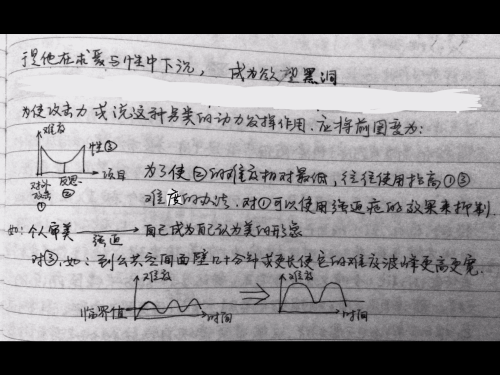 是他在求爱与性中下沉，成为欲望黑洞
为使攻击力或说这种另类的动力发挥作用.应将前图变为:
难度
性③
项目
对外攻击①
反思②
为了使②的难度相对最低，往往使用抬高①③
难度的办法.对①可以使用强迫症的效果来抑制.
如:个人审美 强迫 自己成为自己认为美的形象
对③,如:到公共空间面壁几十分钟或更长使它的难度波峰更高更宽.
难度
临界值
时间
难度
时间